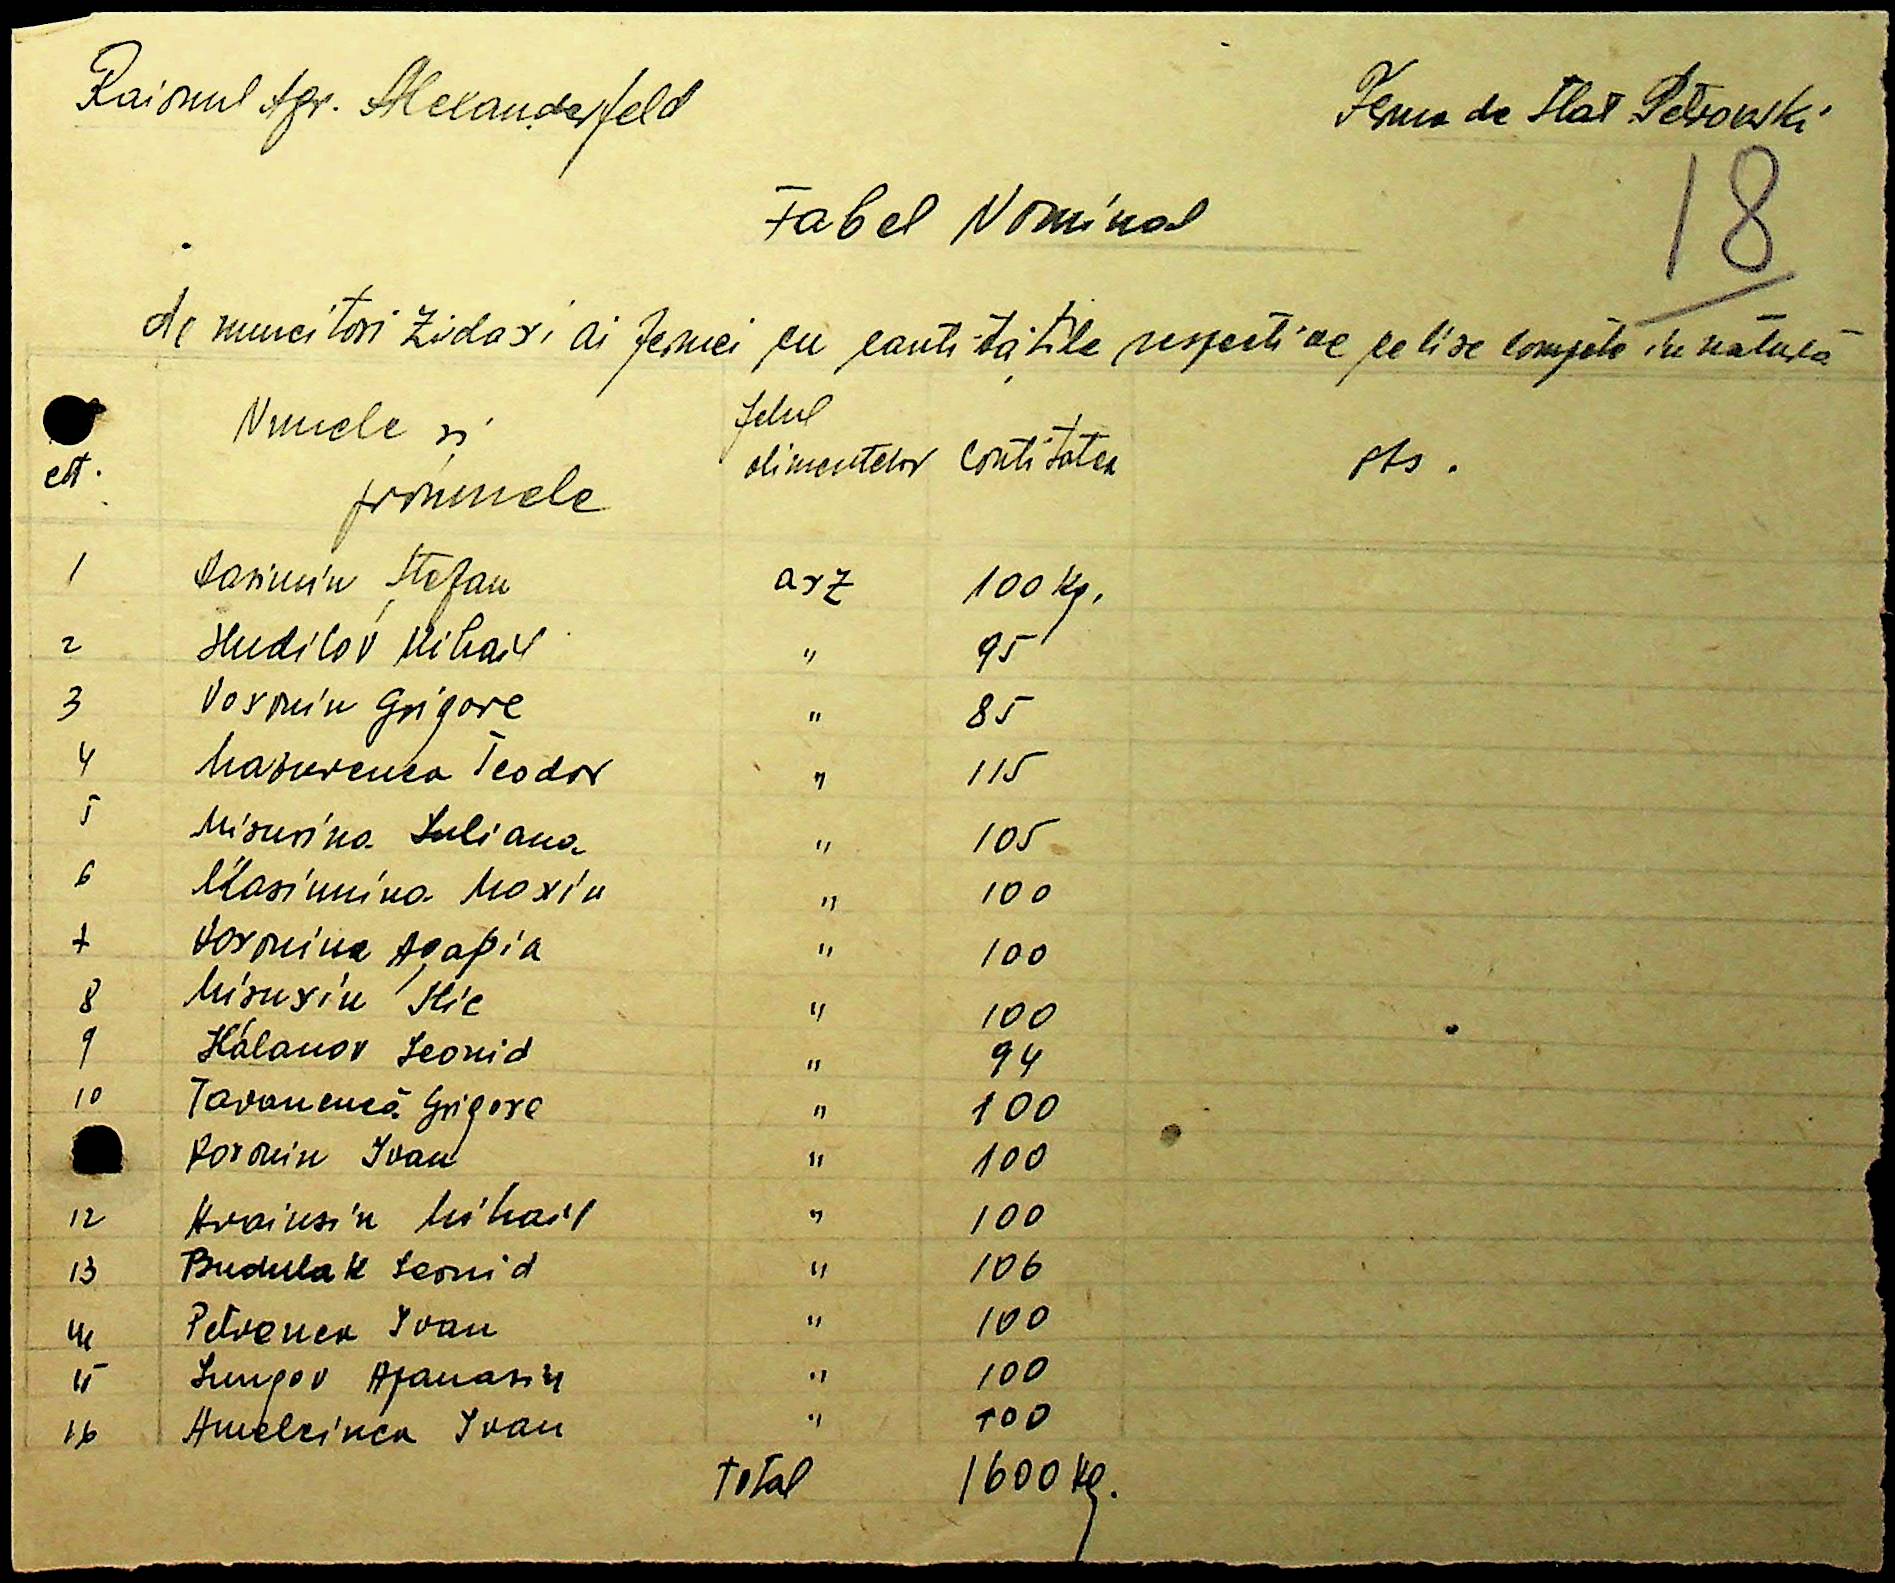 Raionul Agr. Alexanderfeld
Ferma de Stat Petrowski
18
Tabel Nominal
de muncitori Zidari ai fermei cu cantitățile respective ce li se compete in natură
crt. Numele și prenumele felul alimentelor Cantitatea obs.
1 Ștefan orz 100 Kg.
2 Hudilov Mihail " 95
3 Voronin Grigore " 85
4 Mazurenco Teodor " 115
5 Misurina Iuliana " 105
6 Maxin " 100
7 Voronina Agapia " 100
8 Misurin Ilie " 100
9 Halanov Leonid " 94
10 Tavanencă Grigore " 100
Voronin Ivan " 100
12 Mihail " 100
13 Budulak Leonid " 106
14 Petrenco Ivan " 100
15 Lungov Afanasiu " 100
16 Amelcinco Ivan " 100
Total 1600 Kg.